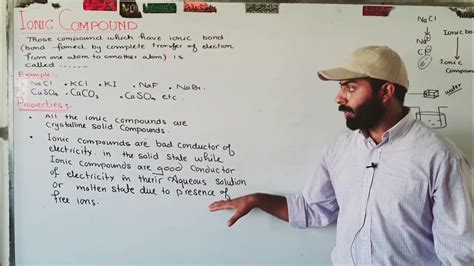 IONIC COMPOUND
Those compound which have ionic bond
(bond fomed by complete transfer of electron
from one atom to another atom) is
called ......
Example:-
• NaCl • KCl • KI • NaF • NaBr.
CuSO4 • CaCO3 • CaSO4 etc.
Properties:-
• All the ionic compounds are
crystalline solid Compounds.
• Ionic compounds are bad conductor of
electricity in the solid state while
Ionic compounds are good conductor
of electricity in their Aqueous solution
or molten state due to presence of
free ions.
NaCl
Ionic
Na
Cl
Ionic
Compo